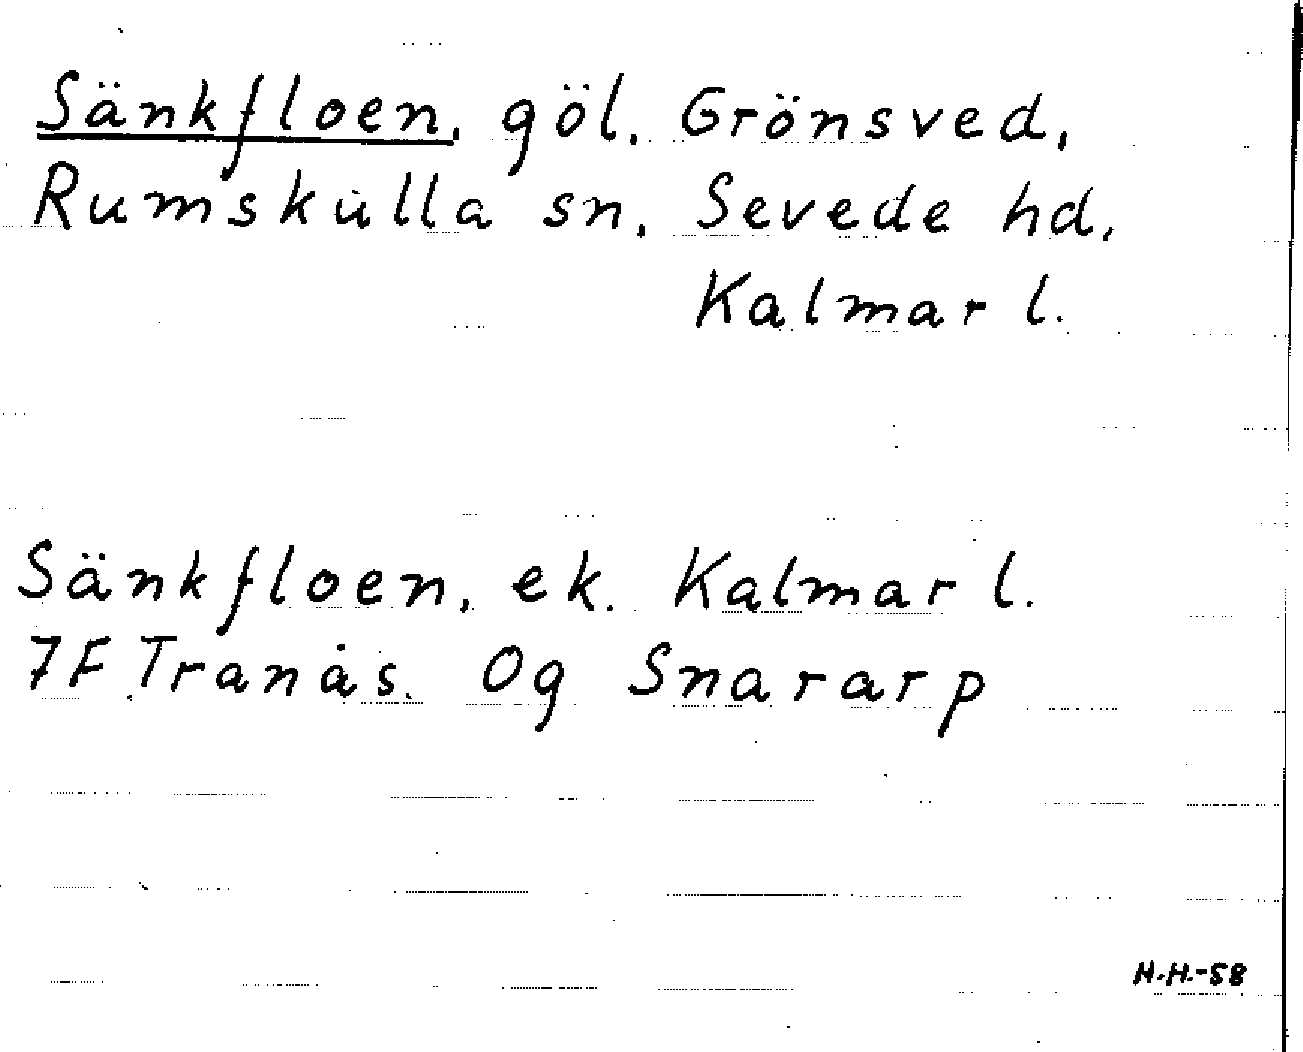 Sänkfloen, göl. Grönsved,
Rumskulla sn, Sevede hd,
Kalmar l.
Sänkfloen, ek. Kalmar l.
7F Tranås. Og Snararp
H.H.-58